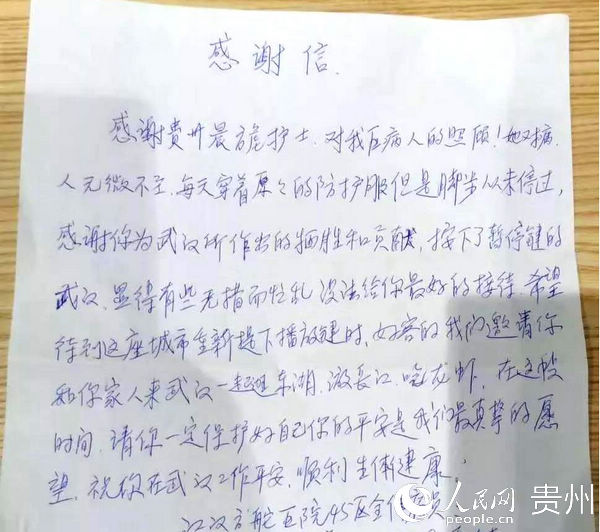 感谢信.
感谢贵州护士,对我区病人的照顾!她对病
人无微不至.每天穿着厚々的防护服但是脚步从未停过,
感谢你为武汉所作出的牺牲和贡献,按下了暂停键的
武汉.显得有些无措而忙乱 没法给你最好的接待.希望
待到这座城市重新下播放键时,好客的我们邀请你
和你家人来武汉一起逛东湖.游长江.吃龙虾.在这段
时间.请你一定保护好自己你的平安是我们最真挚的愿
望.祝你在武汉工作平安.顺利 身体健康;
江汉方舱医院45区全体
人民网 贵州
people.cn